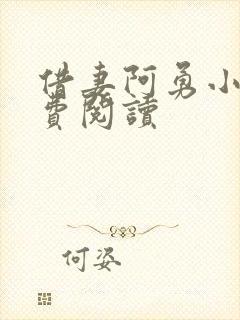 借妻阿勇小
費閱讀
何姿